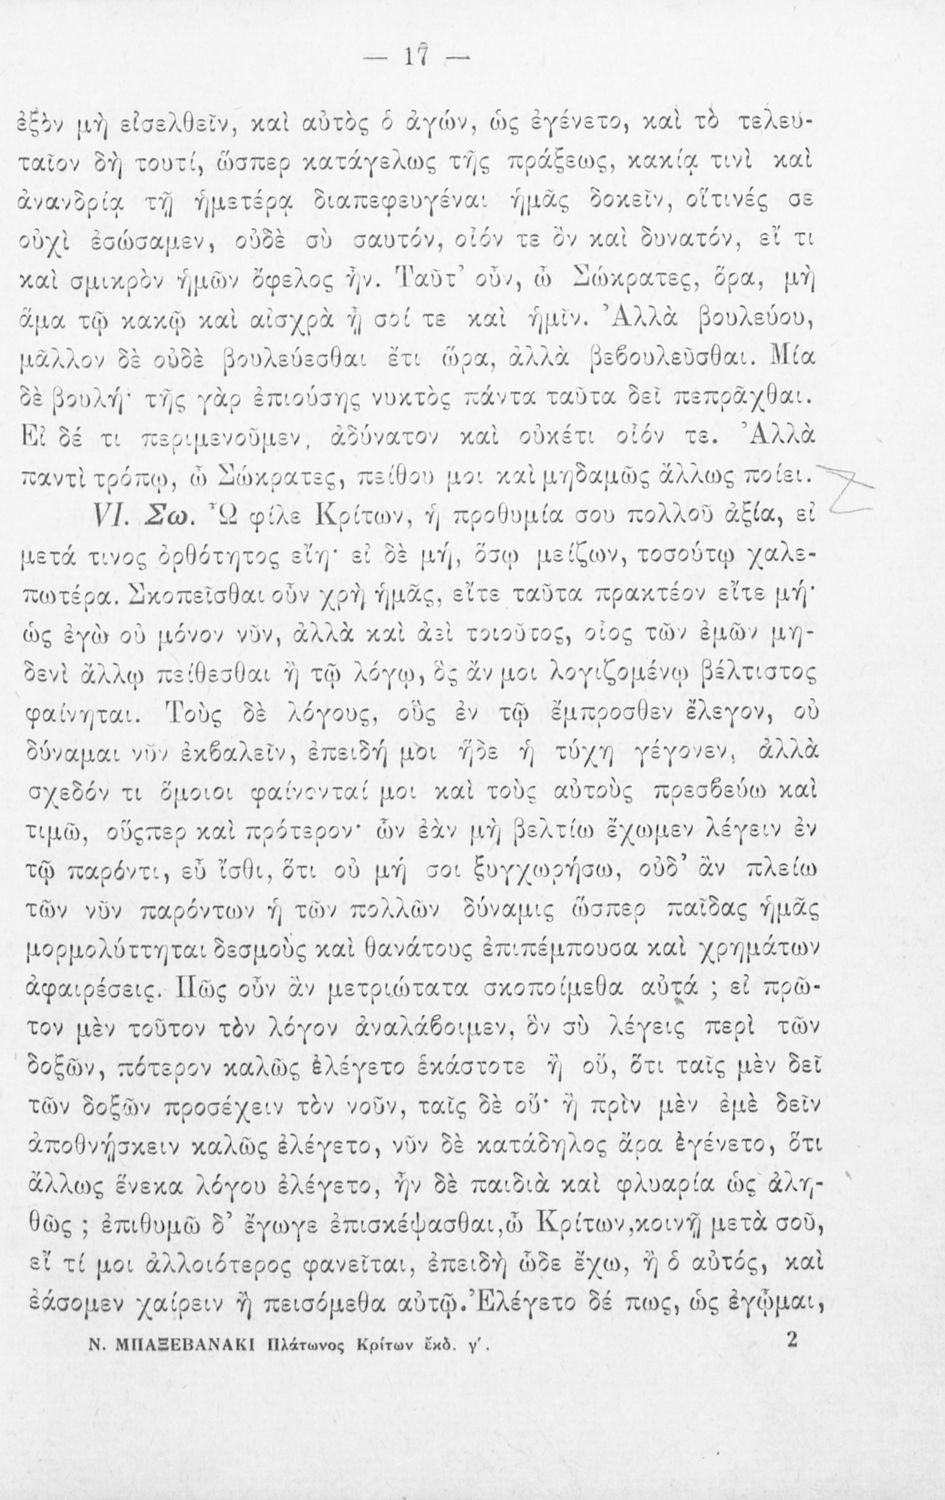 — 17 —
ἐξὸν μὴ εἰσελθεῖν, καὶ αὐτὸς ὁ ἀγών, ὡς ἐγένετο, καὶ τὸ τελευ-
ταῖον δὴ τουτί, ὥσπερ κατάγελως τῆς πράξεως, κακίᾳ τινὶ καὶ
ἀνανδρίᾳ τῇ ἡμετέρᾳ διαπεφευγέναι ἡμᾶς δοκεῖν, οἵτινές σε
οὐχὶ ἐσώσαμεν, οὐδὲ σὺ σαυτόν, οἷόν τε ὂν καὶ δυνατόν, εἴ τι
καὶ σμικρὸν ἡμῶν ὄφελος ἦν. Ταῦτ’ οὖν, ὦ Σώκρατες, ὅρα, μὴ
ἅμα τῷ κακῷ καὶ αἰσχρὰ ᾖ σοί τε καὶ ἡμῖν. Ἀλλὰ βουλεύου,
μᾶλλον δὲ οὐδὲ βουλεύεσθαι ἔτι ὥρα, ἀλλὰ βεβουλεῦσθαι. Μία
δὲ βουλή· τῆς γὰρ ἐπιούσης νυκτὸς πάντα ταῦτα δεῖ πεπρᾶχθαι.
Εἰ δέ τι περιμενοῦμεν, ἀδύνατον καὶ οὐκέτι οἷόν τε. Ἀλλὰ
παντὶ τρόπῳ, ὦ Σώκρατες, πείθου μοι καὶ μηδαμῶς ἄλλως ποίει.
VI. Σω. Ὦ φίλε Κρίτων, ἡ προθυμία σου πολλοῦ ἀξία, εἰ
μετά τινος ὀρθότητος εἴη· εἰ δὲ μή, ὅσῳ μείζων, τοσούτῳ χαλε-
πωτέρα. Σκοπεῖσθαι οὖν χρὴ ἡμᾶς, εἴτε ταῦτα πρακτέον εἴτε μή·
ὡς ἐγὼ οὐ μόνον νῦν, ἀλλὰ καὶ ἀεὶ τοιοῦτος, οἷος τῶν ἐμῶν μη-
δενὶ ἄλλῳ πείθεσθαι ἢ τῷ λόγῳ, ὃς ἄν μοι λογιζομένῳ βέλτιστος
φαίνηται. Τοὺς δὲ λόγους, οὓς ἐν τῷ ἔμπροσθεν ἔλεγον, οὐ
δύναμαι νῦν ἐκβαλεῖν, ἐπειδή μοι ἥδε ἡ τύχη γέγονεν, ἀλλὰ
σχεδόν τι ὅμοιοι φαίνονταί μοι καὶ τοὺς αὐτοὺς πρεσβεύω καὶ
τιμῶ, οὕσπερ καὶ πρότερον· ὧν ἐὰν μὴ βελτίω ἔχωμεν λέγειν ἐν
τῷ παρόντι, εὖ ἴσθι, ὅτι οὐ μή σοι ξυγχωρήσω, οὐδ’ ἂν πλείω
τῶν νῦν παρόντων ἡ τῶν πολλῶν δύναμις ὥσπερ παῖδας ἡμᾶς
μορμολύττηται δεσμοὺς καὶ θανάτους ἐπιπέμπουσα καὶ χρημάτων
ἀφαιρέσεις. Πῶς οὖν ἂν μετριώτατα σκοποίμεθα αὐτά ; εἰ πρῶ-
τον μὲν τοῦτον τὸν λόγον ἀναλάβοιμεν, ὃν σὺ λέγεις περὶ τῶν
δοξῶν, πότερον καλῶς ἐλέγετο ἑκάστοτε ἢ οὔ, ὅτι ταῖς μὲν δεῖ
τῶν δοξῶν προσέχειν τὸν νοῦν, ταῖς δὲ οὔ· ἢ πρὶν μὲν ἐμὲ δεῖν
ἀποθνῄσκειν καλῶς ἐλέγετο, νῦν δὲ κατάδηλος ἄρα ἐγένετο, ὅτι
ἄλλως ἕνεκα λόγου ἐλέγετο, ἦν δὲ παιδιὰ καὶ φλυαρία ὡς ἀλη-
θῶς ; ἐπιθυμῶ δ’ ἔγωγε ἐπισκέψασθαι, ὦ Κρίτων, κοινῇ μετὰ σοῦ,
εἴ τί μοι ἀλλοιότερος φανεῖται, ἐπειδὴ ὧδε ἔχω, ἢ ὁ αὐτός, καὶ
ἐάσομεν χαίρειν ἢ πεισόμεθα αὐτῷ. Ἐλέγετο δέ πως, ὡς ἐγᾦμαι,
Ν. ΜΠΑΞΕΒΑΝΑΚΙ Πλάτωνος Κρίτων ἔκδ. γ΄. 2